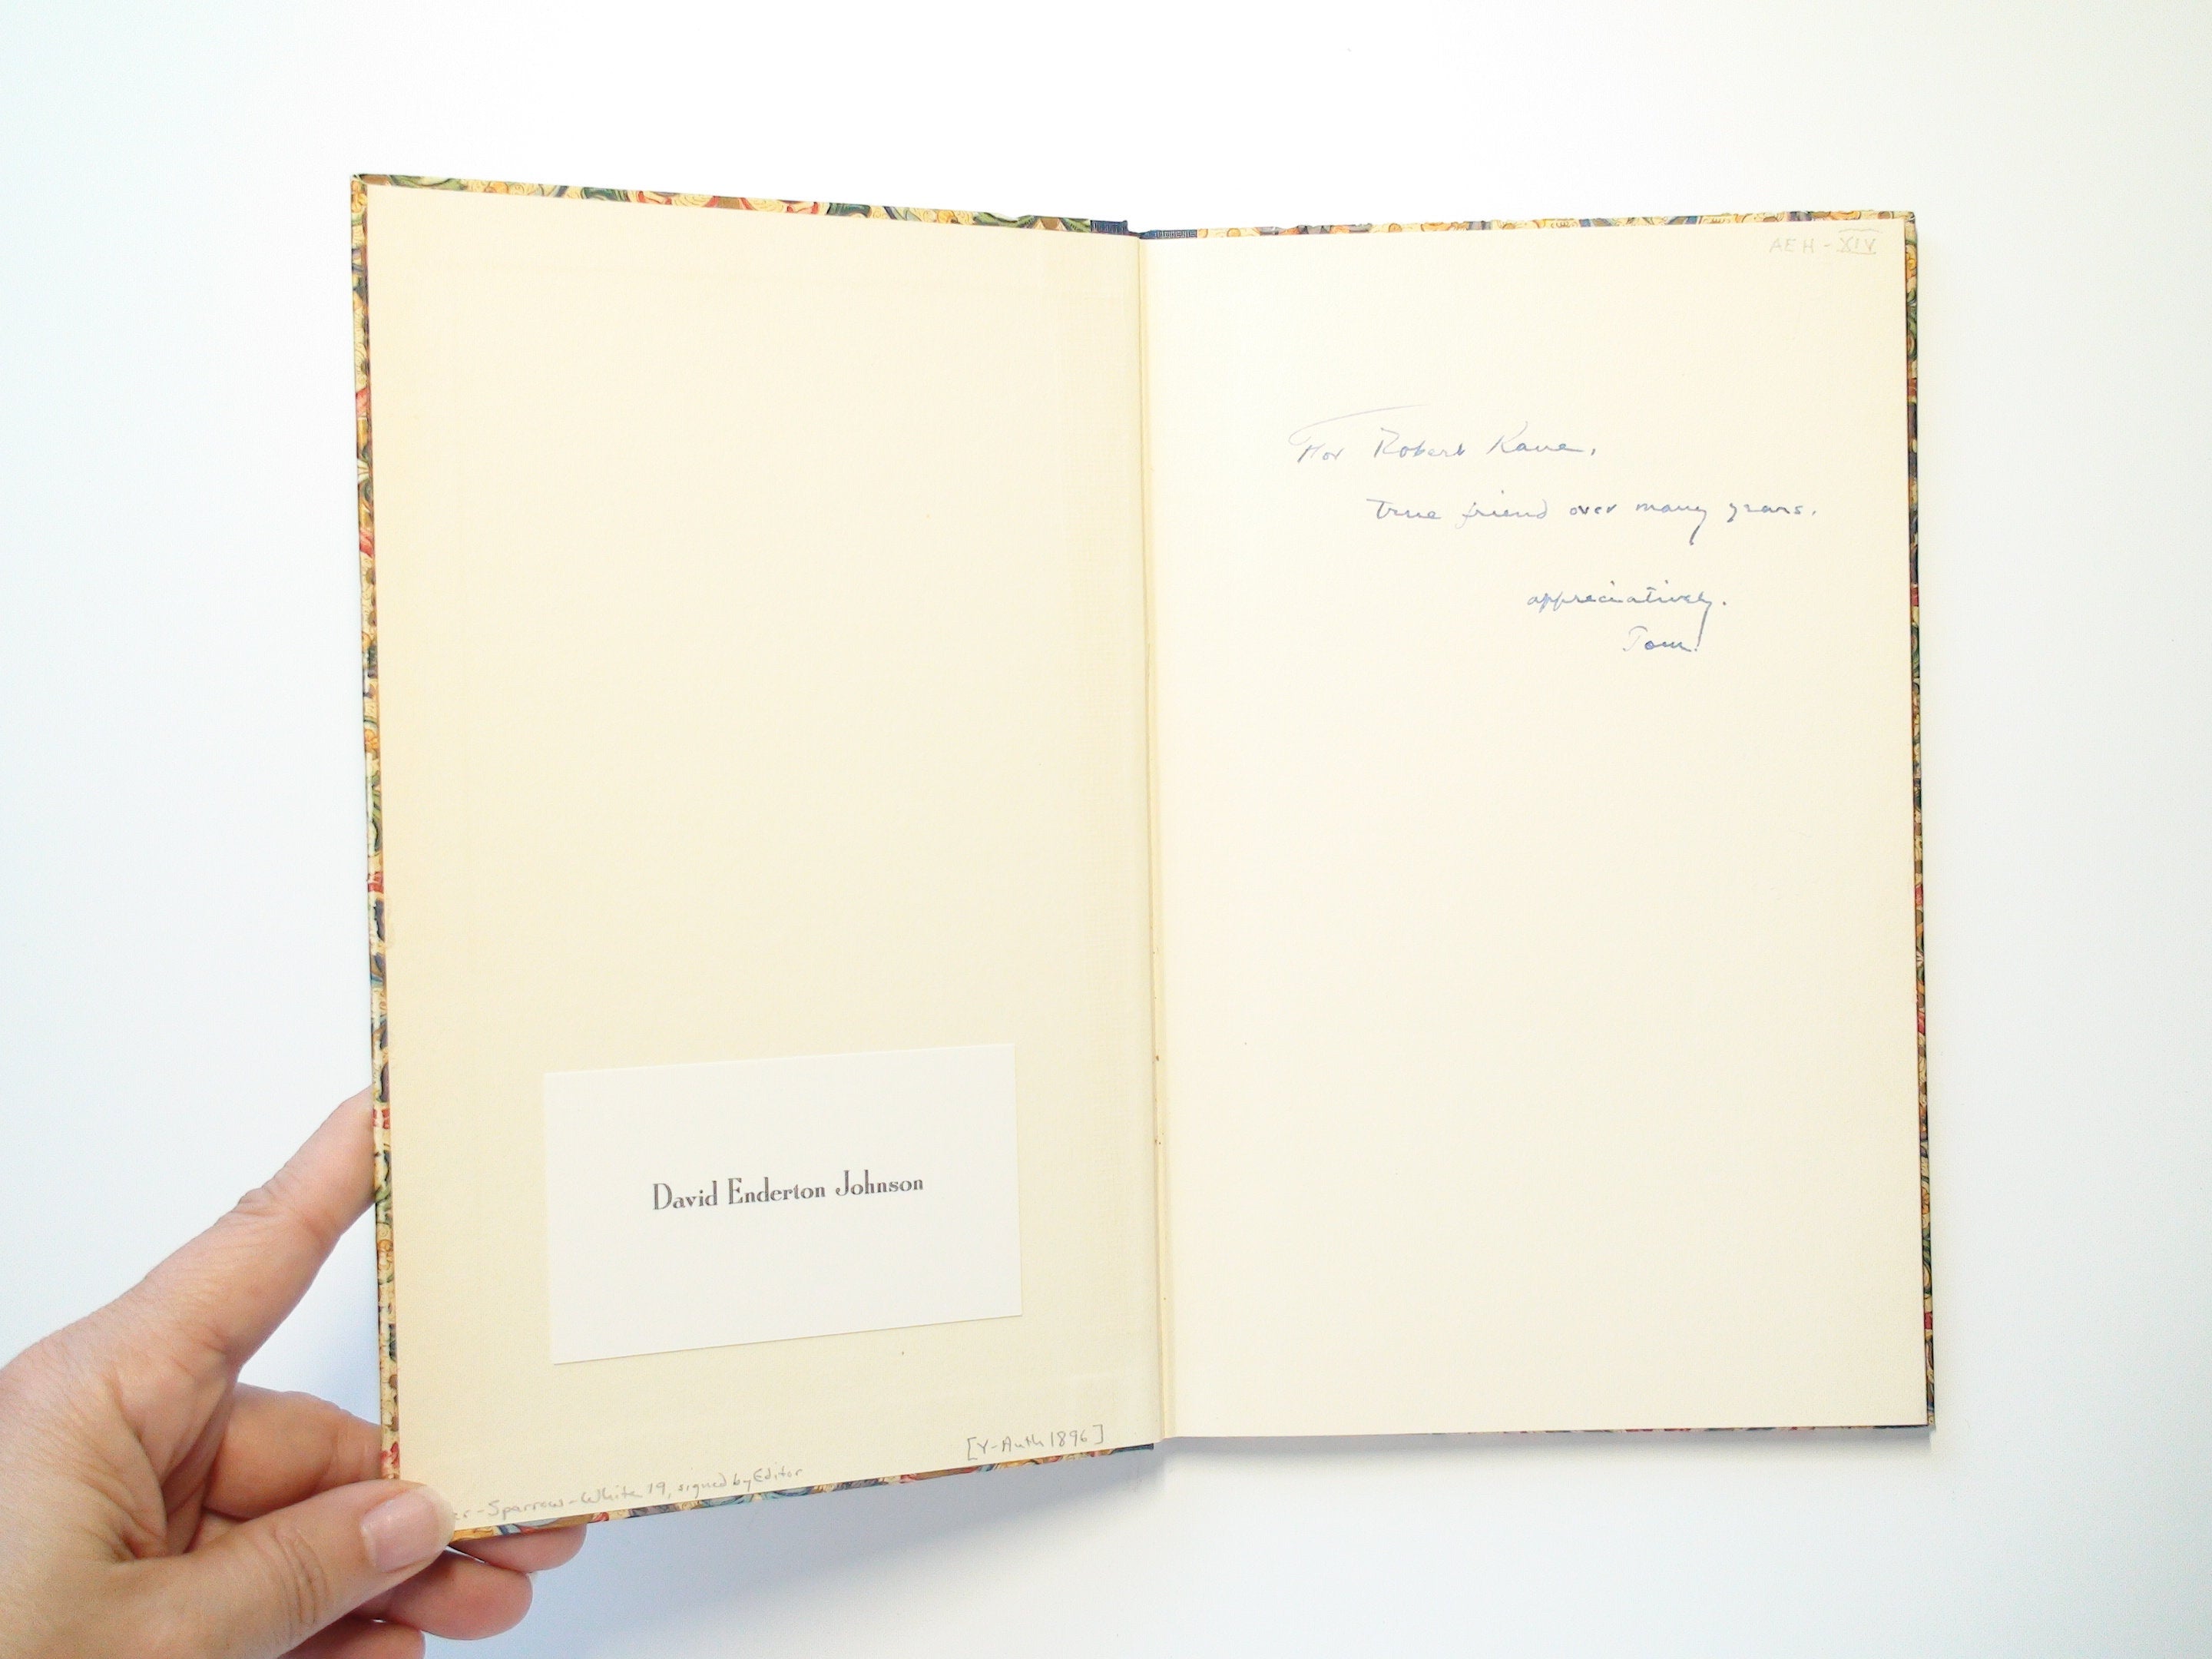 David Enderton Johnson
[Y-Auth 1896]
er-Sparrow-White 19, signed by Editor
AEH-XIV
For Robert Kane,
True friend over many years.
appreciatively.
Tom.